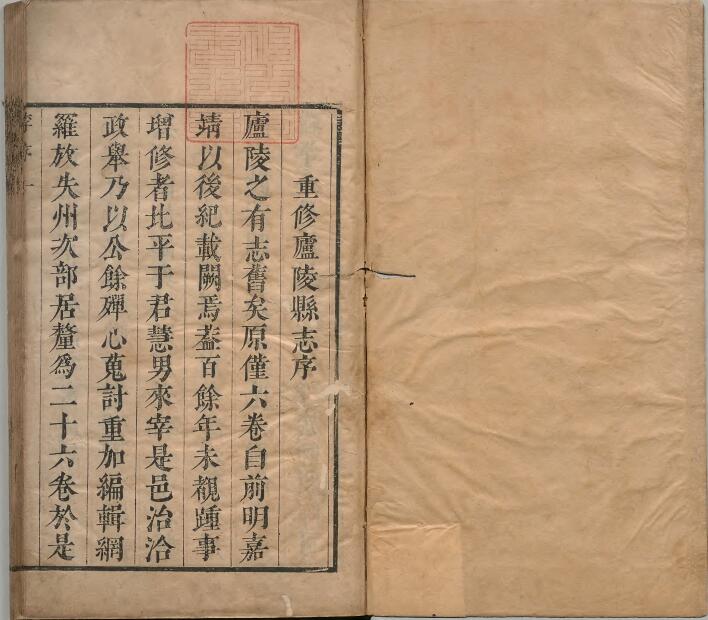 重修廬陵縣志序
廬陵之有志舊矣原僅六卷自前明嘉
靖以後紀載闕焉葢百餘年未覩踵事
增修者比平于君慧男來宰是邑治洽
政舉乃以公餘殫心蒐討重加編輯網
羅放失州次部居釐為二十六卷於是